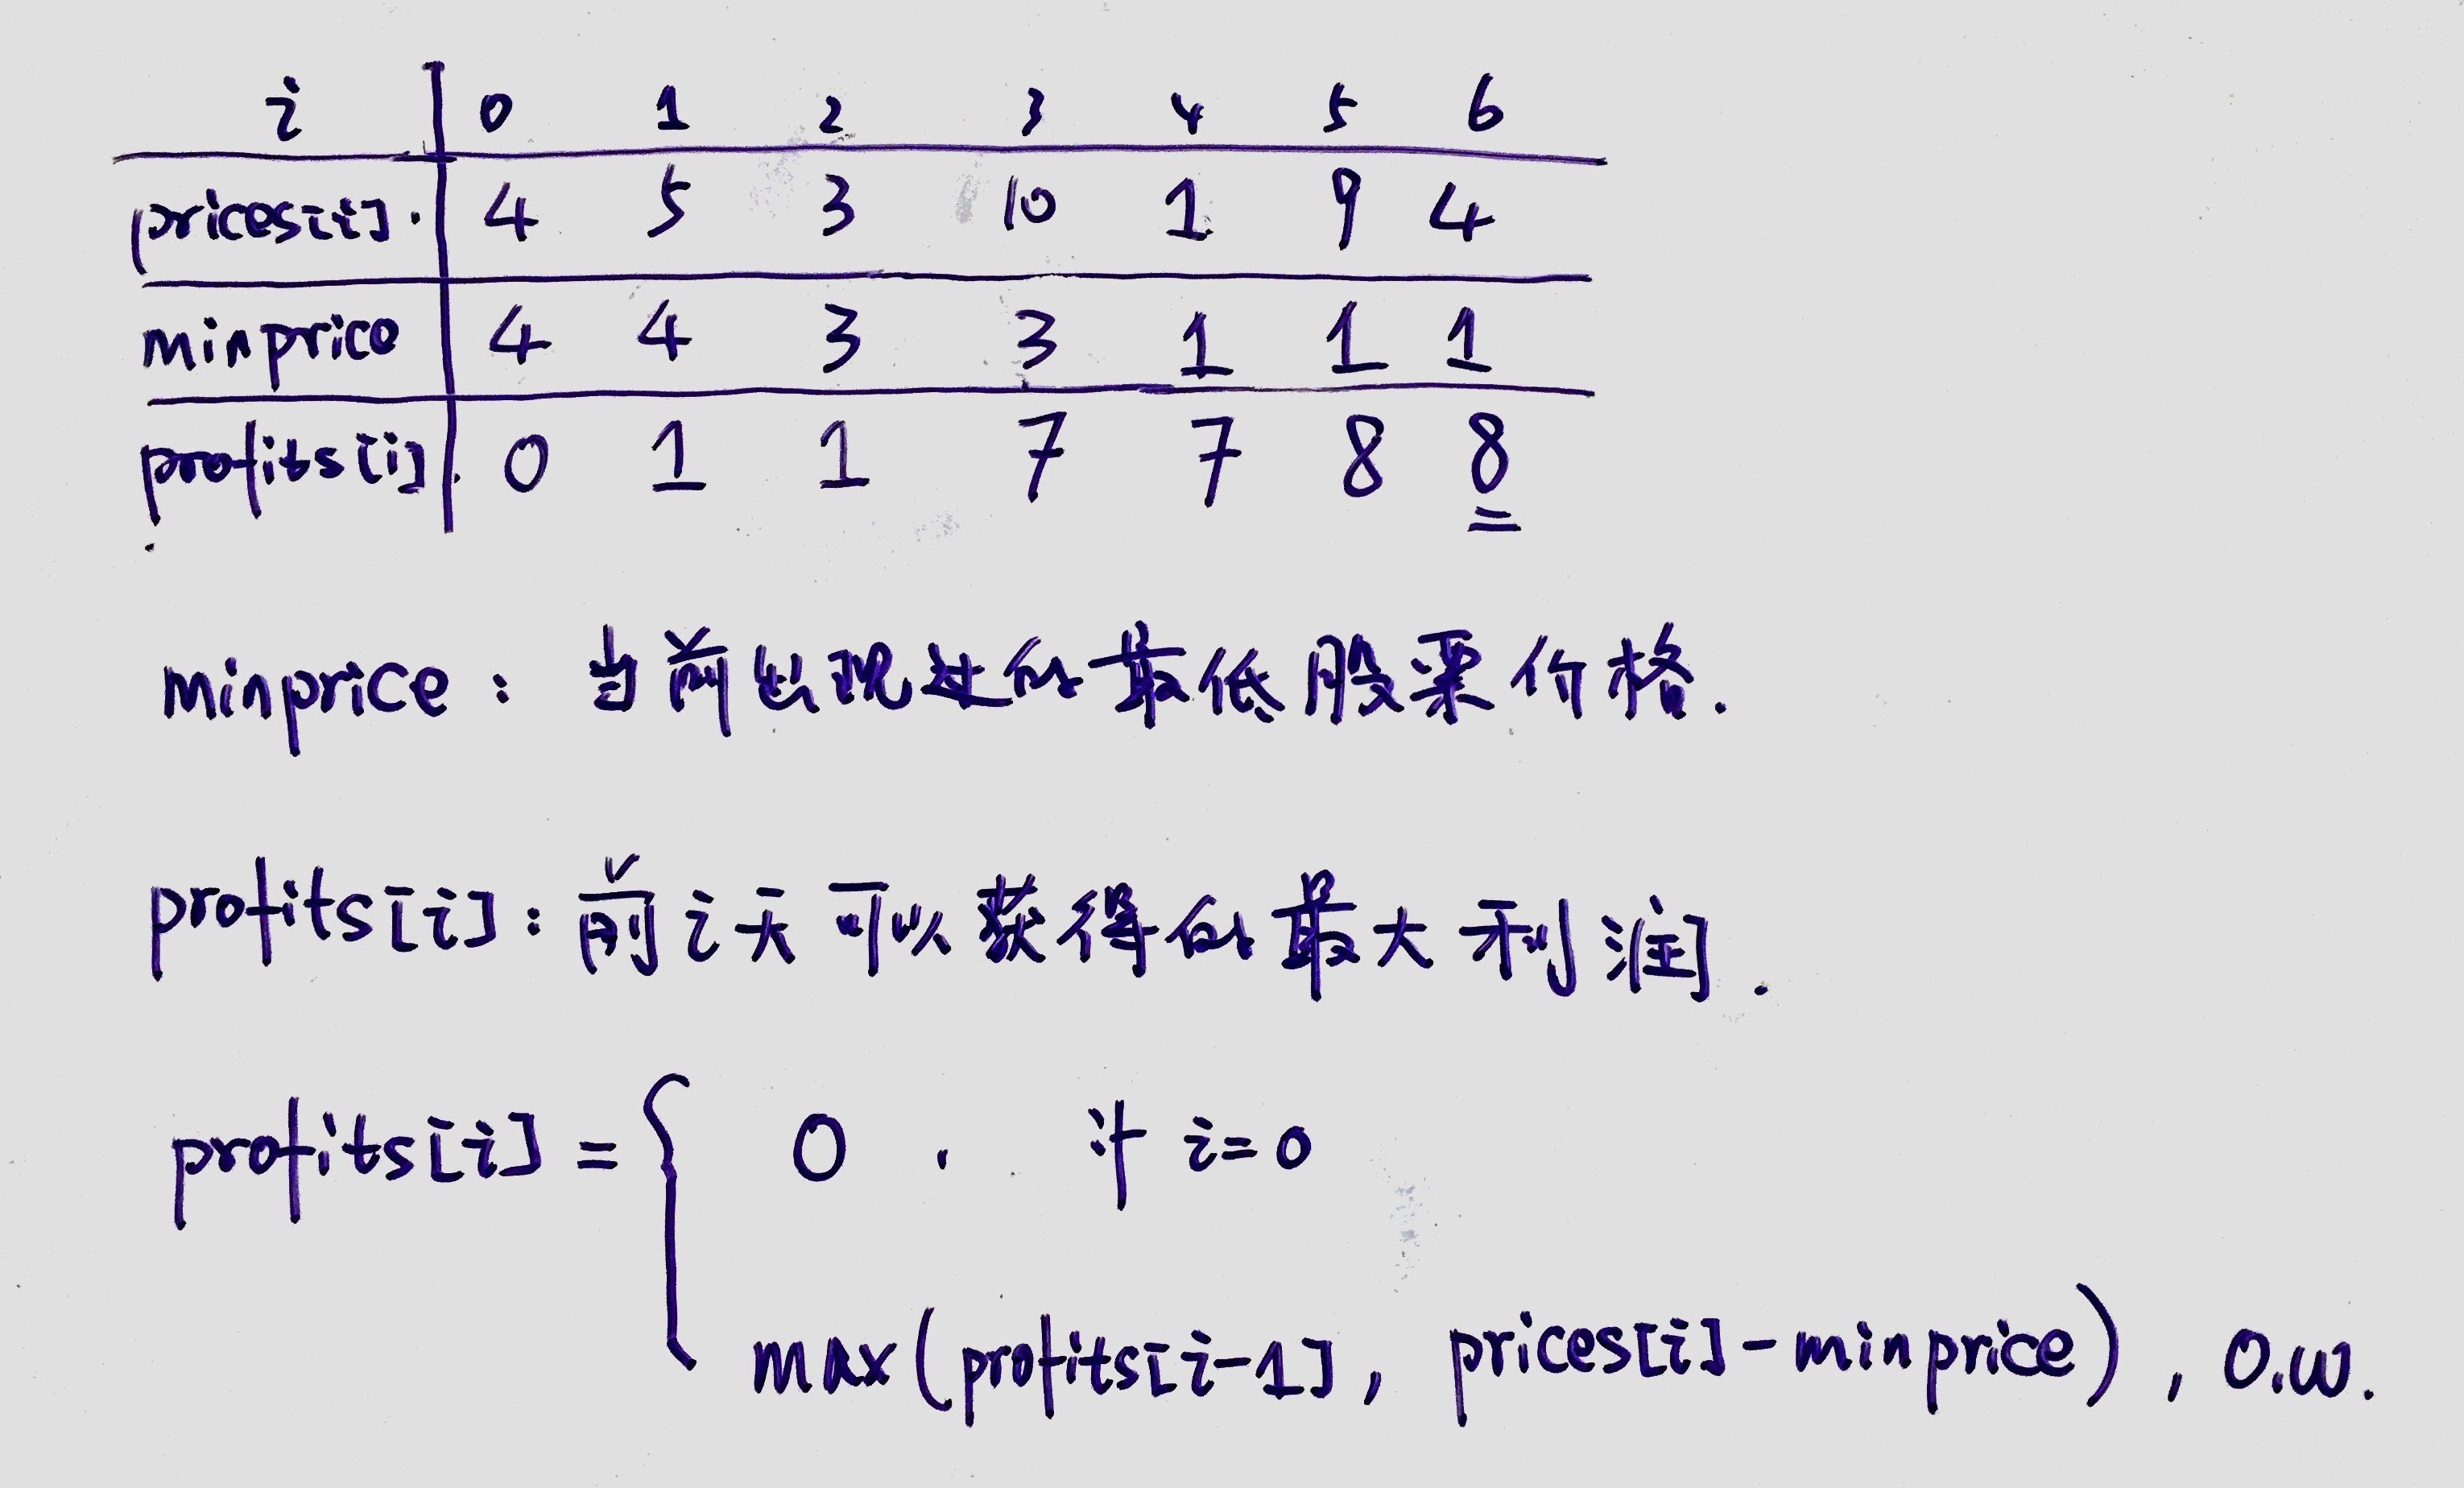 i 0 1 2 3 4 5 6
prices[i]. 4 5 3 10 1 9 4
minprice 4 4 3 3 1 1 1
profits[i]. 0 1 1 7 7 8 8
minprice：当前出现过的最低股票价格.
profits[i]：前i天可以获得的最大利润.
profits[i] = { 0 , if i=0
max(profits[i-1], prices[i]-minprice), O.W.